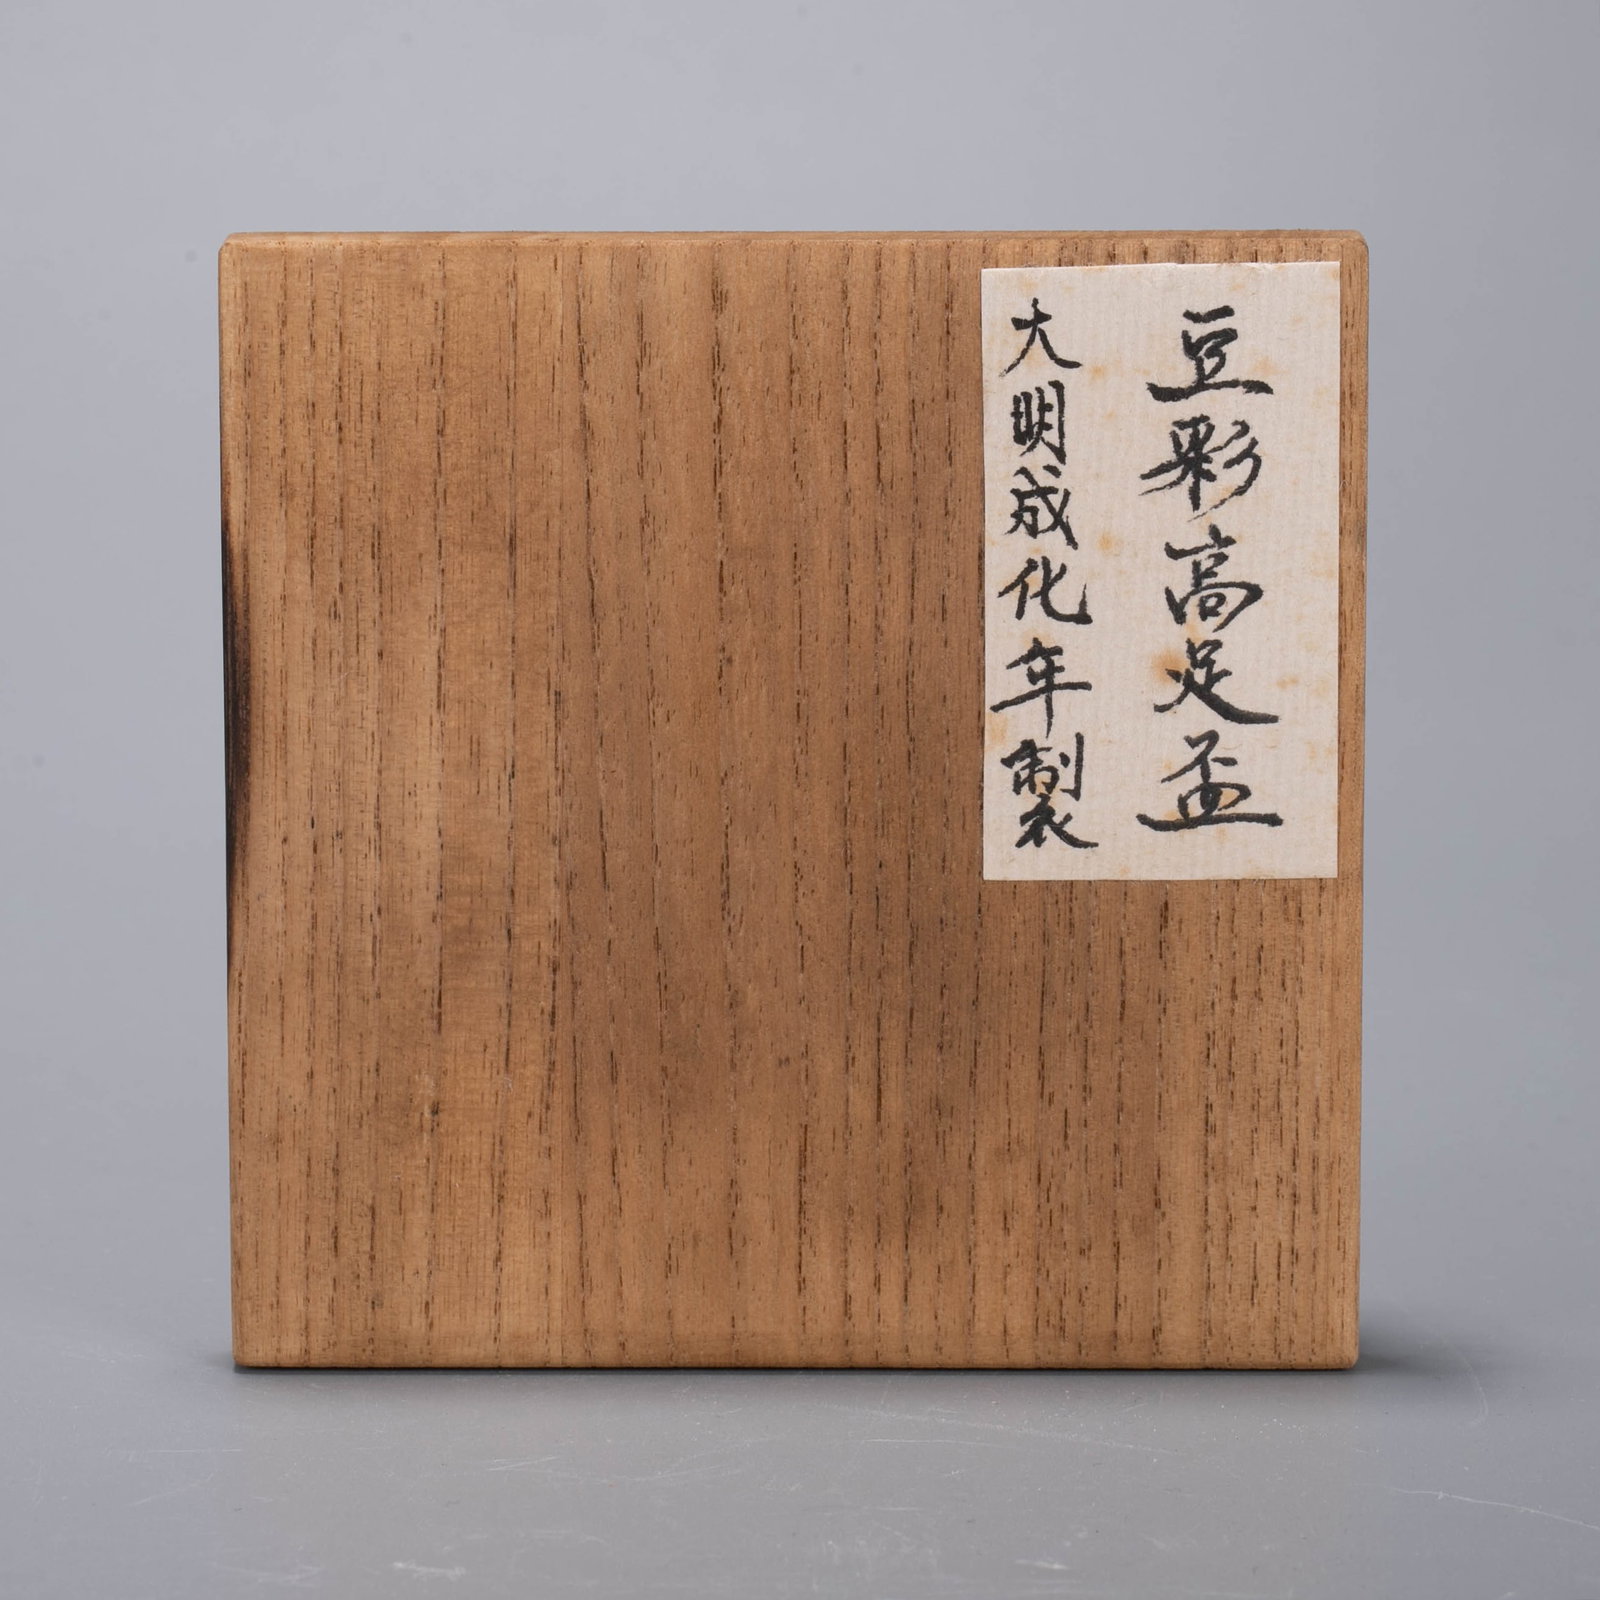 豆彩高足盃
大明成化年製